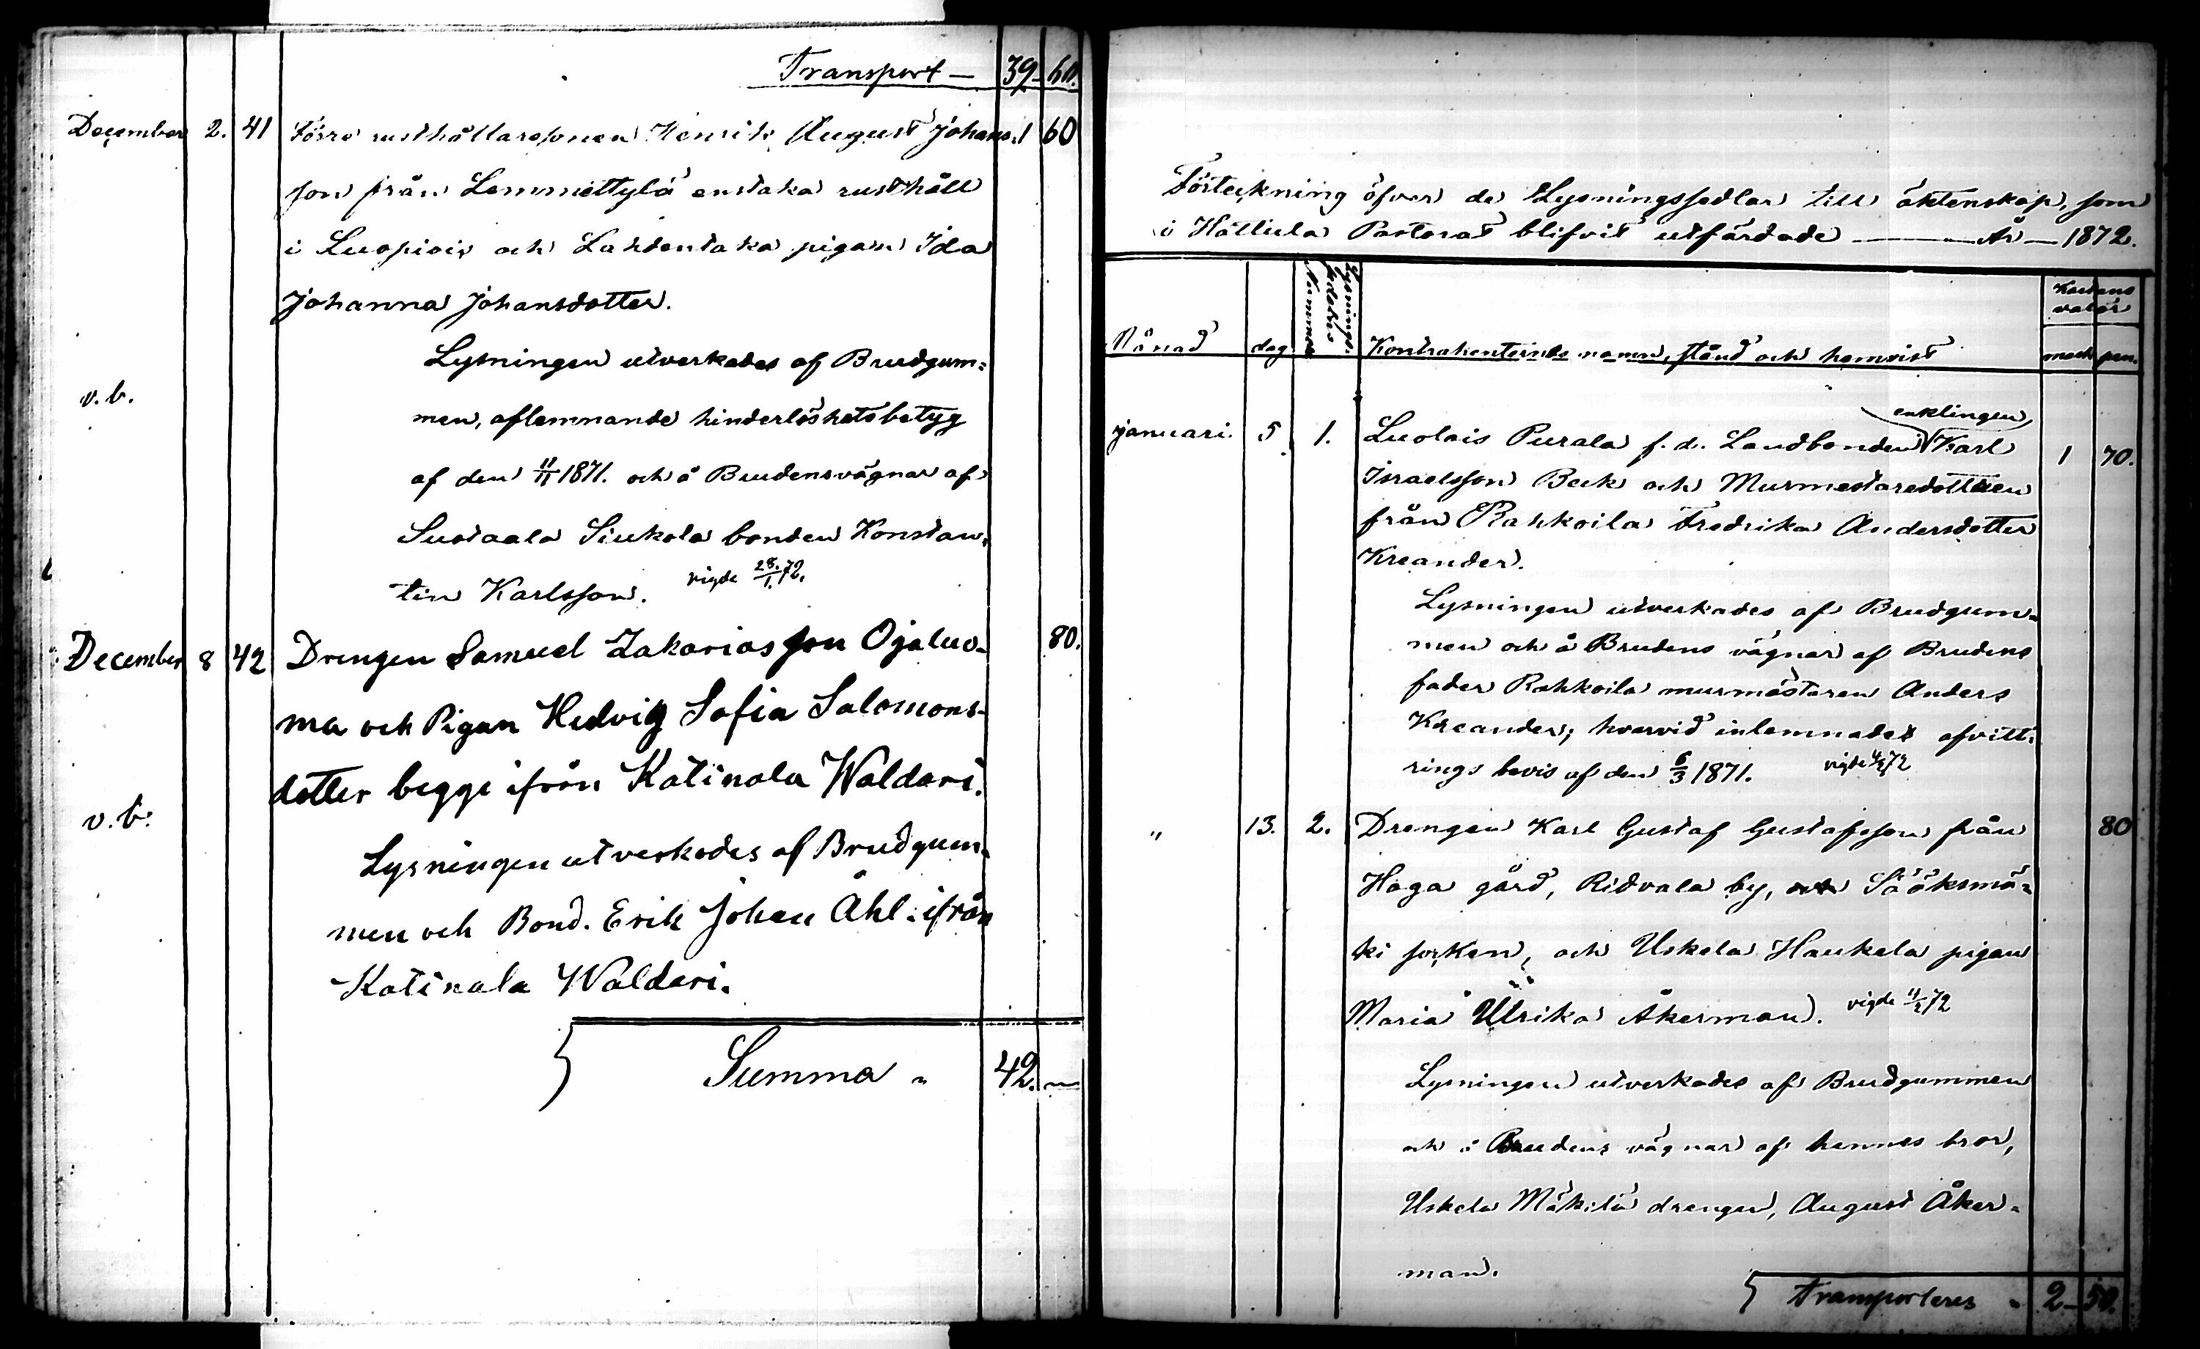 Transport — 39 - 60.
December 2. 41 Förre rusthållaresonen Henrik August Johans= 1 60
son från Lemmettylä enstaka rusthåll
i Luopiois och Lahdentaka pigan Ida
Johanna Johansdotter.
Lysningen utverkades af Brudgum=
v.b.
men, aflemnande hinderlöshetsbetyg
af den 11/11 1871. och å Brudens vägnar af
Suotaala Siukola bonden Konstan=
tin Karlsson. vigde 28/1. 72.
December 8 42 Drengen Samuel Zakariasson Ojaluo- 80.
ma och Pigan Hedvig Sofia Salomons-
dotter begge ifrån Katinala Waldari.
v.b.
Lysningen utverkades af Brudgum-
men och Bond. Erik Johan Åhl ifrån
Katinala Waldari.
Summa " 42. —
Förteckning öfver de Lysningssedlar till äktenskap, som
i Hattula Pastorat blifvit utfärdade — År — 1872.
Månad dag Lysnings- sedelns Nummer Kontrahenternes namn, stånd och hemvist Kartans valör mark pen.
enklingen
Januari. 5 1. Luolais Purala f. d. Landbonden Karl 1 70.
Israelsson Beck och Murmestaredottren
från Rahkoila Fredrika Andersdotter
Kreander.
Lysningen utverkades af Brudgum=
men och å Brudens vägnar af Brudens
fader Rahkoila murmästaren Anders
Kreander; hvarvid inlemnades afvitt=
rings bevis af den 6/3 1871. vigde 72
" 13. 2. Drengen Karl Gustaf Gustafsson från 80
Haga gård, Ridvala by, Sääksmä=
ki socken, och Uskela Haukela pigan
Maria Ulrika Åkerman. vigde 11/2 72
Lysningen utverkades af Brudgummen
och å Brudens vägnar af hennes bror,
Uskela Mäkilä drengen, August Åker=
man.
Transporteres " 2 - 50.